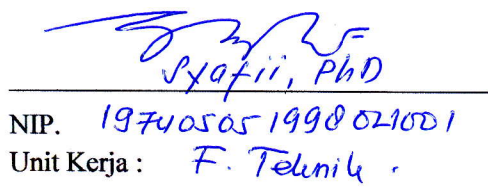 Syafii, PhD
NIP. 197405051998021001
Unit Kerja : F. Teknik .